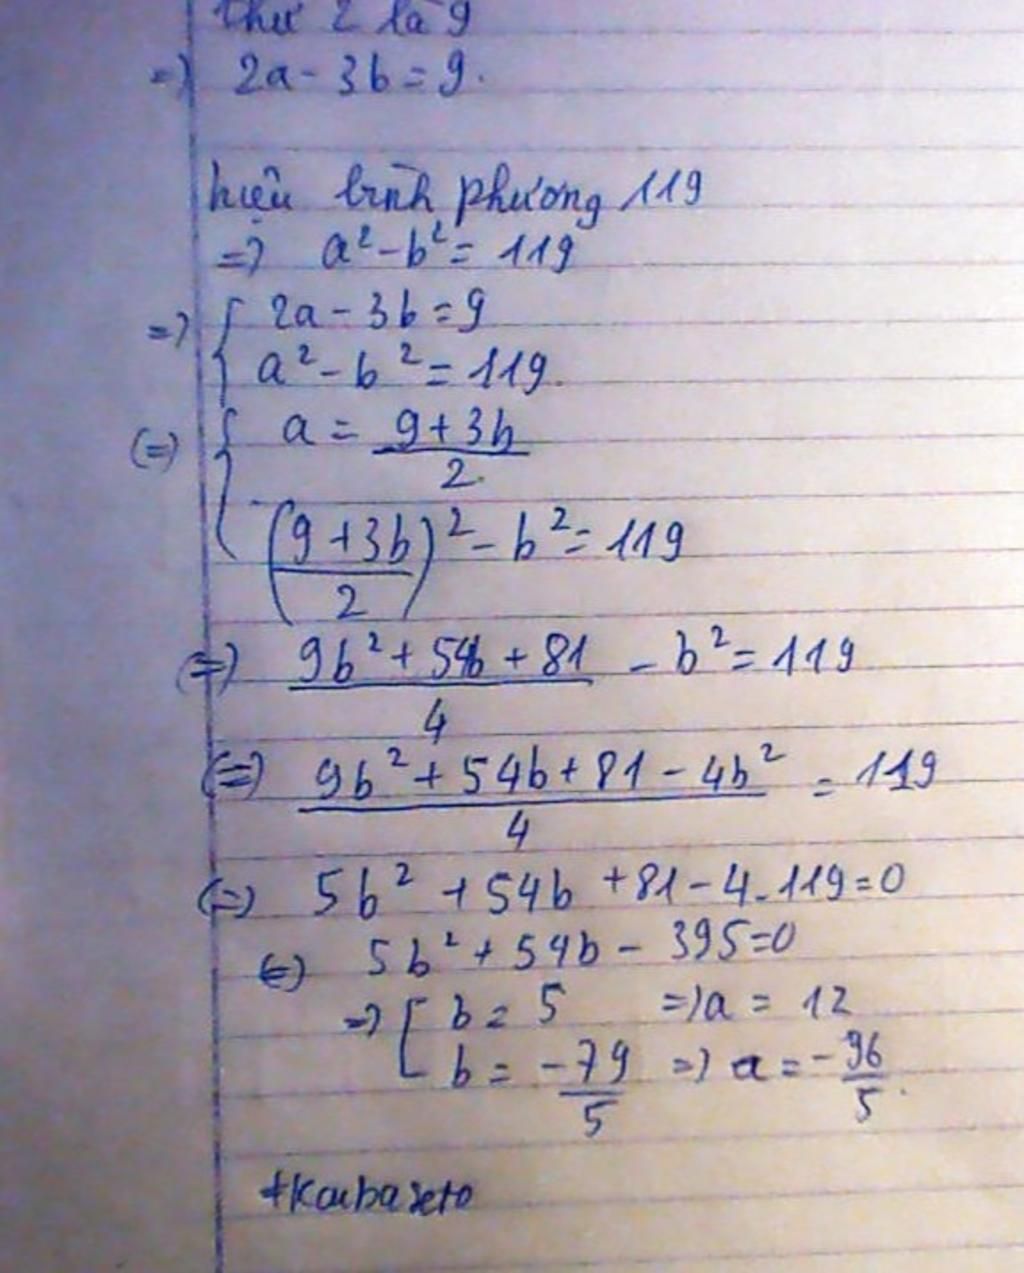 thứ 2 là 9
=> 2a - 3b = 9.
hiệu bình phương 119
=> a² - b² = 119
=> { 2a - 3b = 9
a² - b² = 119.
(=) { a = (9 + 3b)/2.
((9 + 3b)/2)² - b² = 119
(=) (9b² + 54b + 81)/4 - b² = 119
(=) (9b² + 54b + 81 - 4b²)/4 = 119
(=) 5b² + 54b + 81 - 4.119 = 0
(=) 5b² + 54b - 395 = 0
=> [ b = 5 => a = 12
b = -79/5 => a = -96/5.
+Kaibaseto